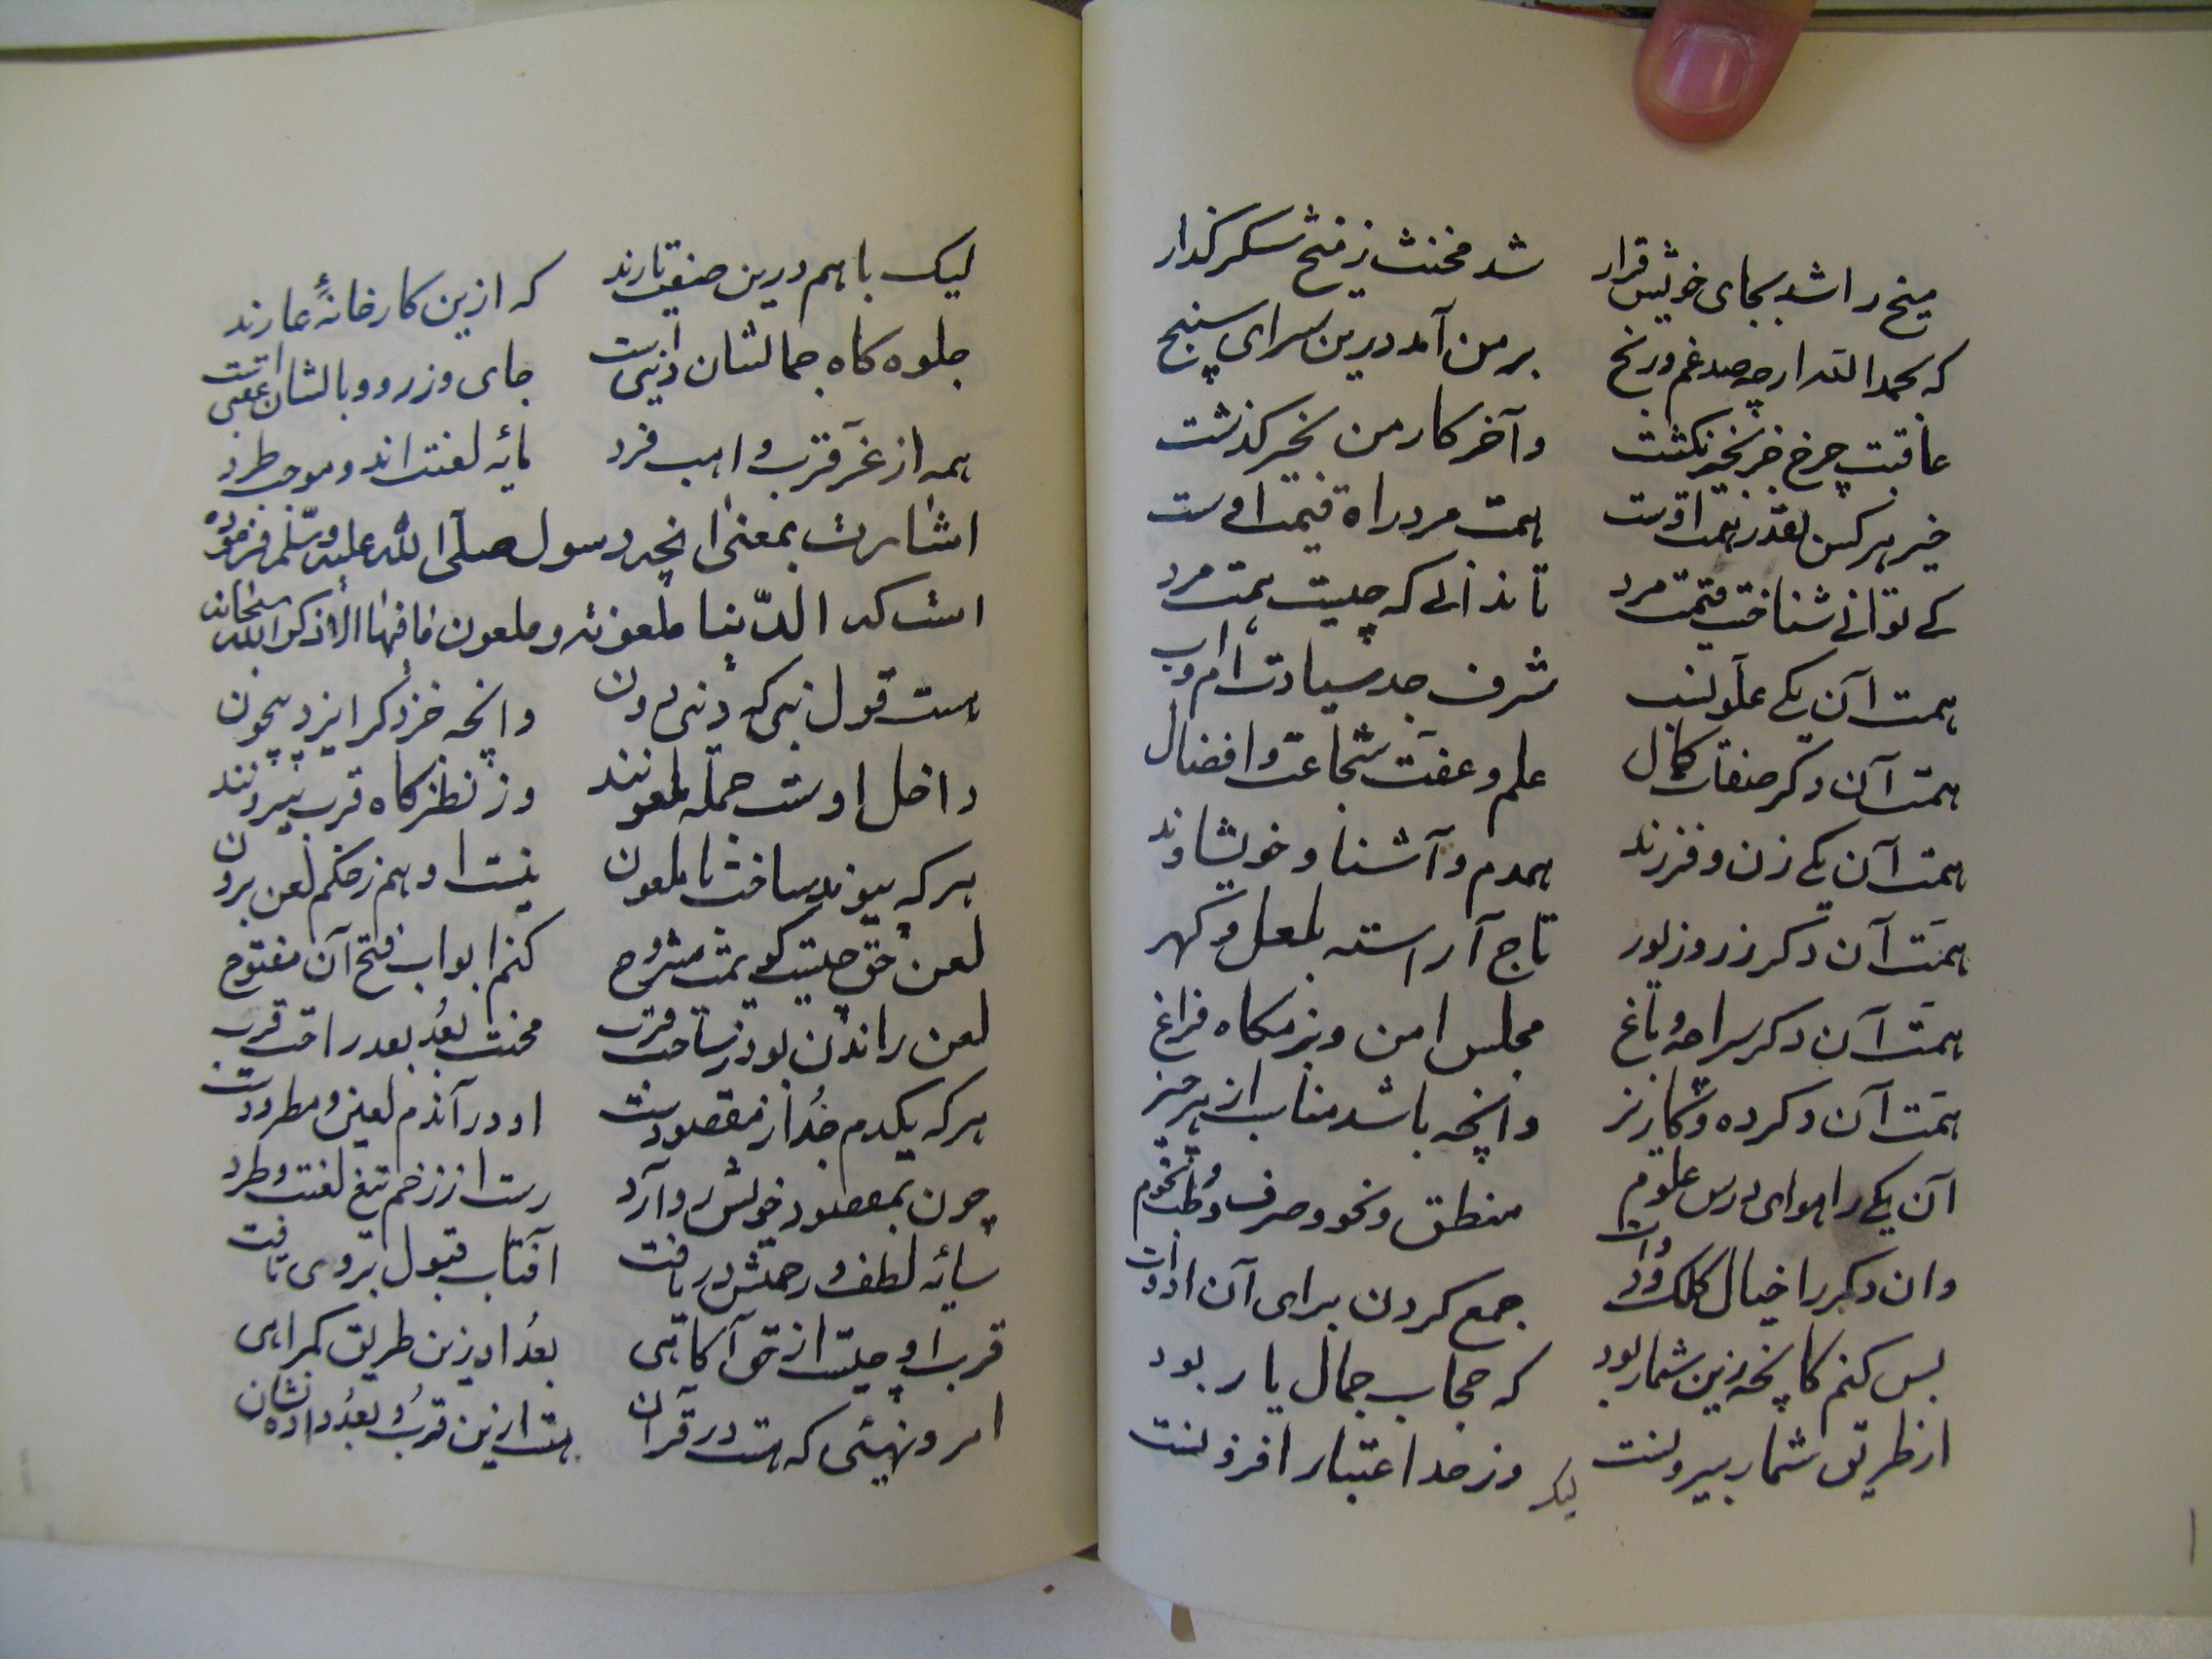 میخ را شد بجای خویش قرار شد مخنث ز میخ شکر گذار
که بحمد الله ارچه صد غم و رنج بر من آمد درین سرای سپنج
عاقبت چرخ جز بخیر نگشت و آخر کار من بخیر گذشت
خیر هر کس بقدر همت اوست همت مرد راه قیمت اوست
کے توانے شناخت قیمت مرد تا ندانے که چیست همت مرد
همت آن یکے علو نسب شرف جد سیادت ام و اب
همت آن دکر صفات کمال علم و عفت شجاعت و افضال
همت آن یکے زن و فرزند همدم و آشنا و خویشاوند
همت آن دکر زر و زیور تاج آراسته بلعل و کهر
همت آن دکر سراچه و باغ مجلس امن و بزمکاه فراغ
همت آن دکر ده و کاریز وانچه باشد مناسب از هر چیز
آن یکے را هوای درس علوم منطق و نحو و صرف و طب و نجوم
وان دکر را خیال کلک و دوات جمع کردن برای آن ادوات
بس کنم کانچه زین شمار بود که حجاب جمال یار بود
از طریق شمار بیرونست وز حد اعتبار افزونست
لیک
لیک با هم درین صفت یارند که ازین کارخانهٔ عارند
جلوه کاه جمالشان دنیی است جای وزر و وبالشان عقبی است
همه از عز قرب واهب فرد مایه لعنت اند و موجب طرد
اشارت بمعنی انچه رسول صلی الله علیه وسلم فرموده
است که الدنیا ملعونة و ملعون ما فیها الا ذکر الله سبحانه
هست قول نبی که دنیی دون وانچه جز ذکر ایزد بیچون
داخل اوست جمله ملعونند وز نظرکاه قرب بیرونند
هر که پیوند ساخت با ملعون نیست او هم ز حکم لعن برون
لعن حق چیست کویمت مشروح کنم ابواب فتح آن مفتوح
لعن راندن بود ز ساحت قرب محنت بعد بعد راحت قرب
هر که یکدم جدا ز مقصودست او در آندم لعین و مطرودست
چون بمقصود خویش رو آرد رست از زخم تیغ لعنت و طرد
سایه لطف و رحمتش دریافت آفتاب قبول بر وی تافت
قرب او چیست از حق آکاهی بعد او زین طریق کمراهی
امر و نهیئی که هست در قرآن هست ازین قرب و بعد داده نشان